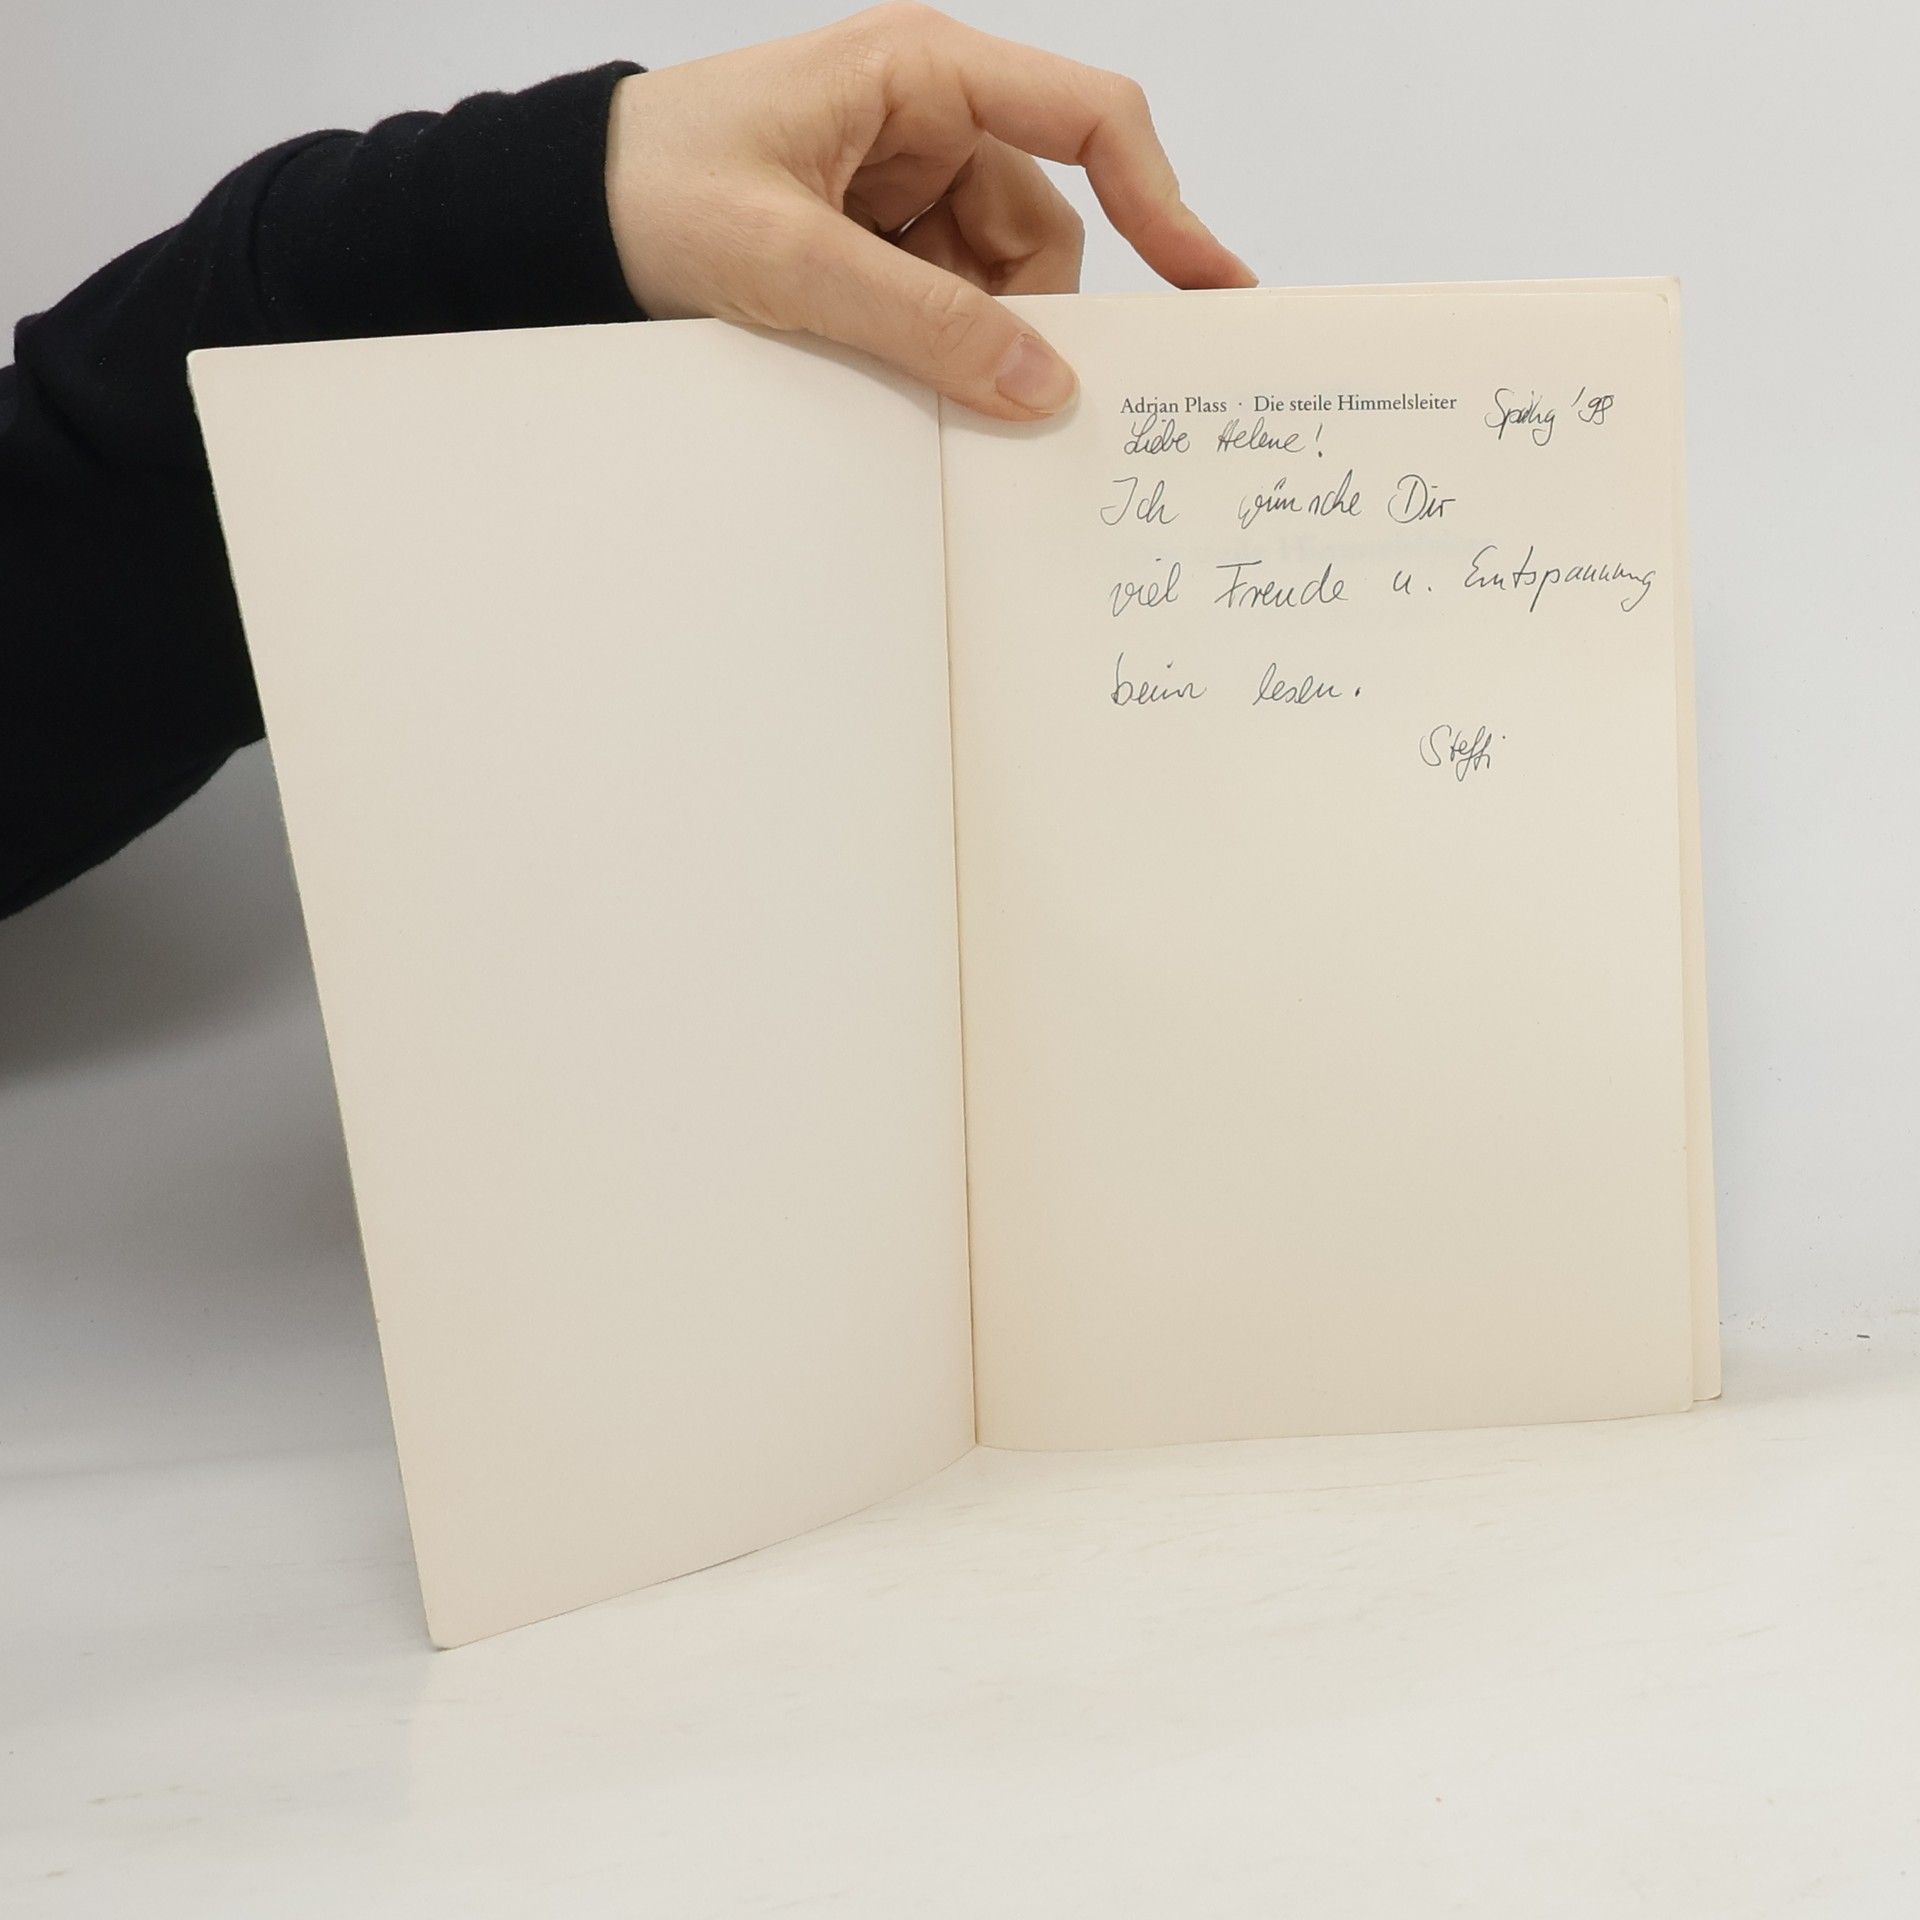 Adrian Plass · Die steile Himmelsleiter Spring '98
Liebe Helene!
Ich wünsche Dir
viel Freude u. Entspannung
beim lesen.
Steffi